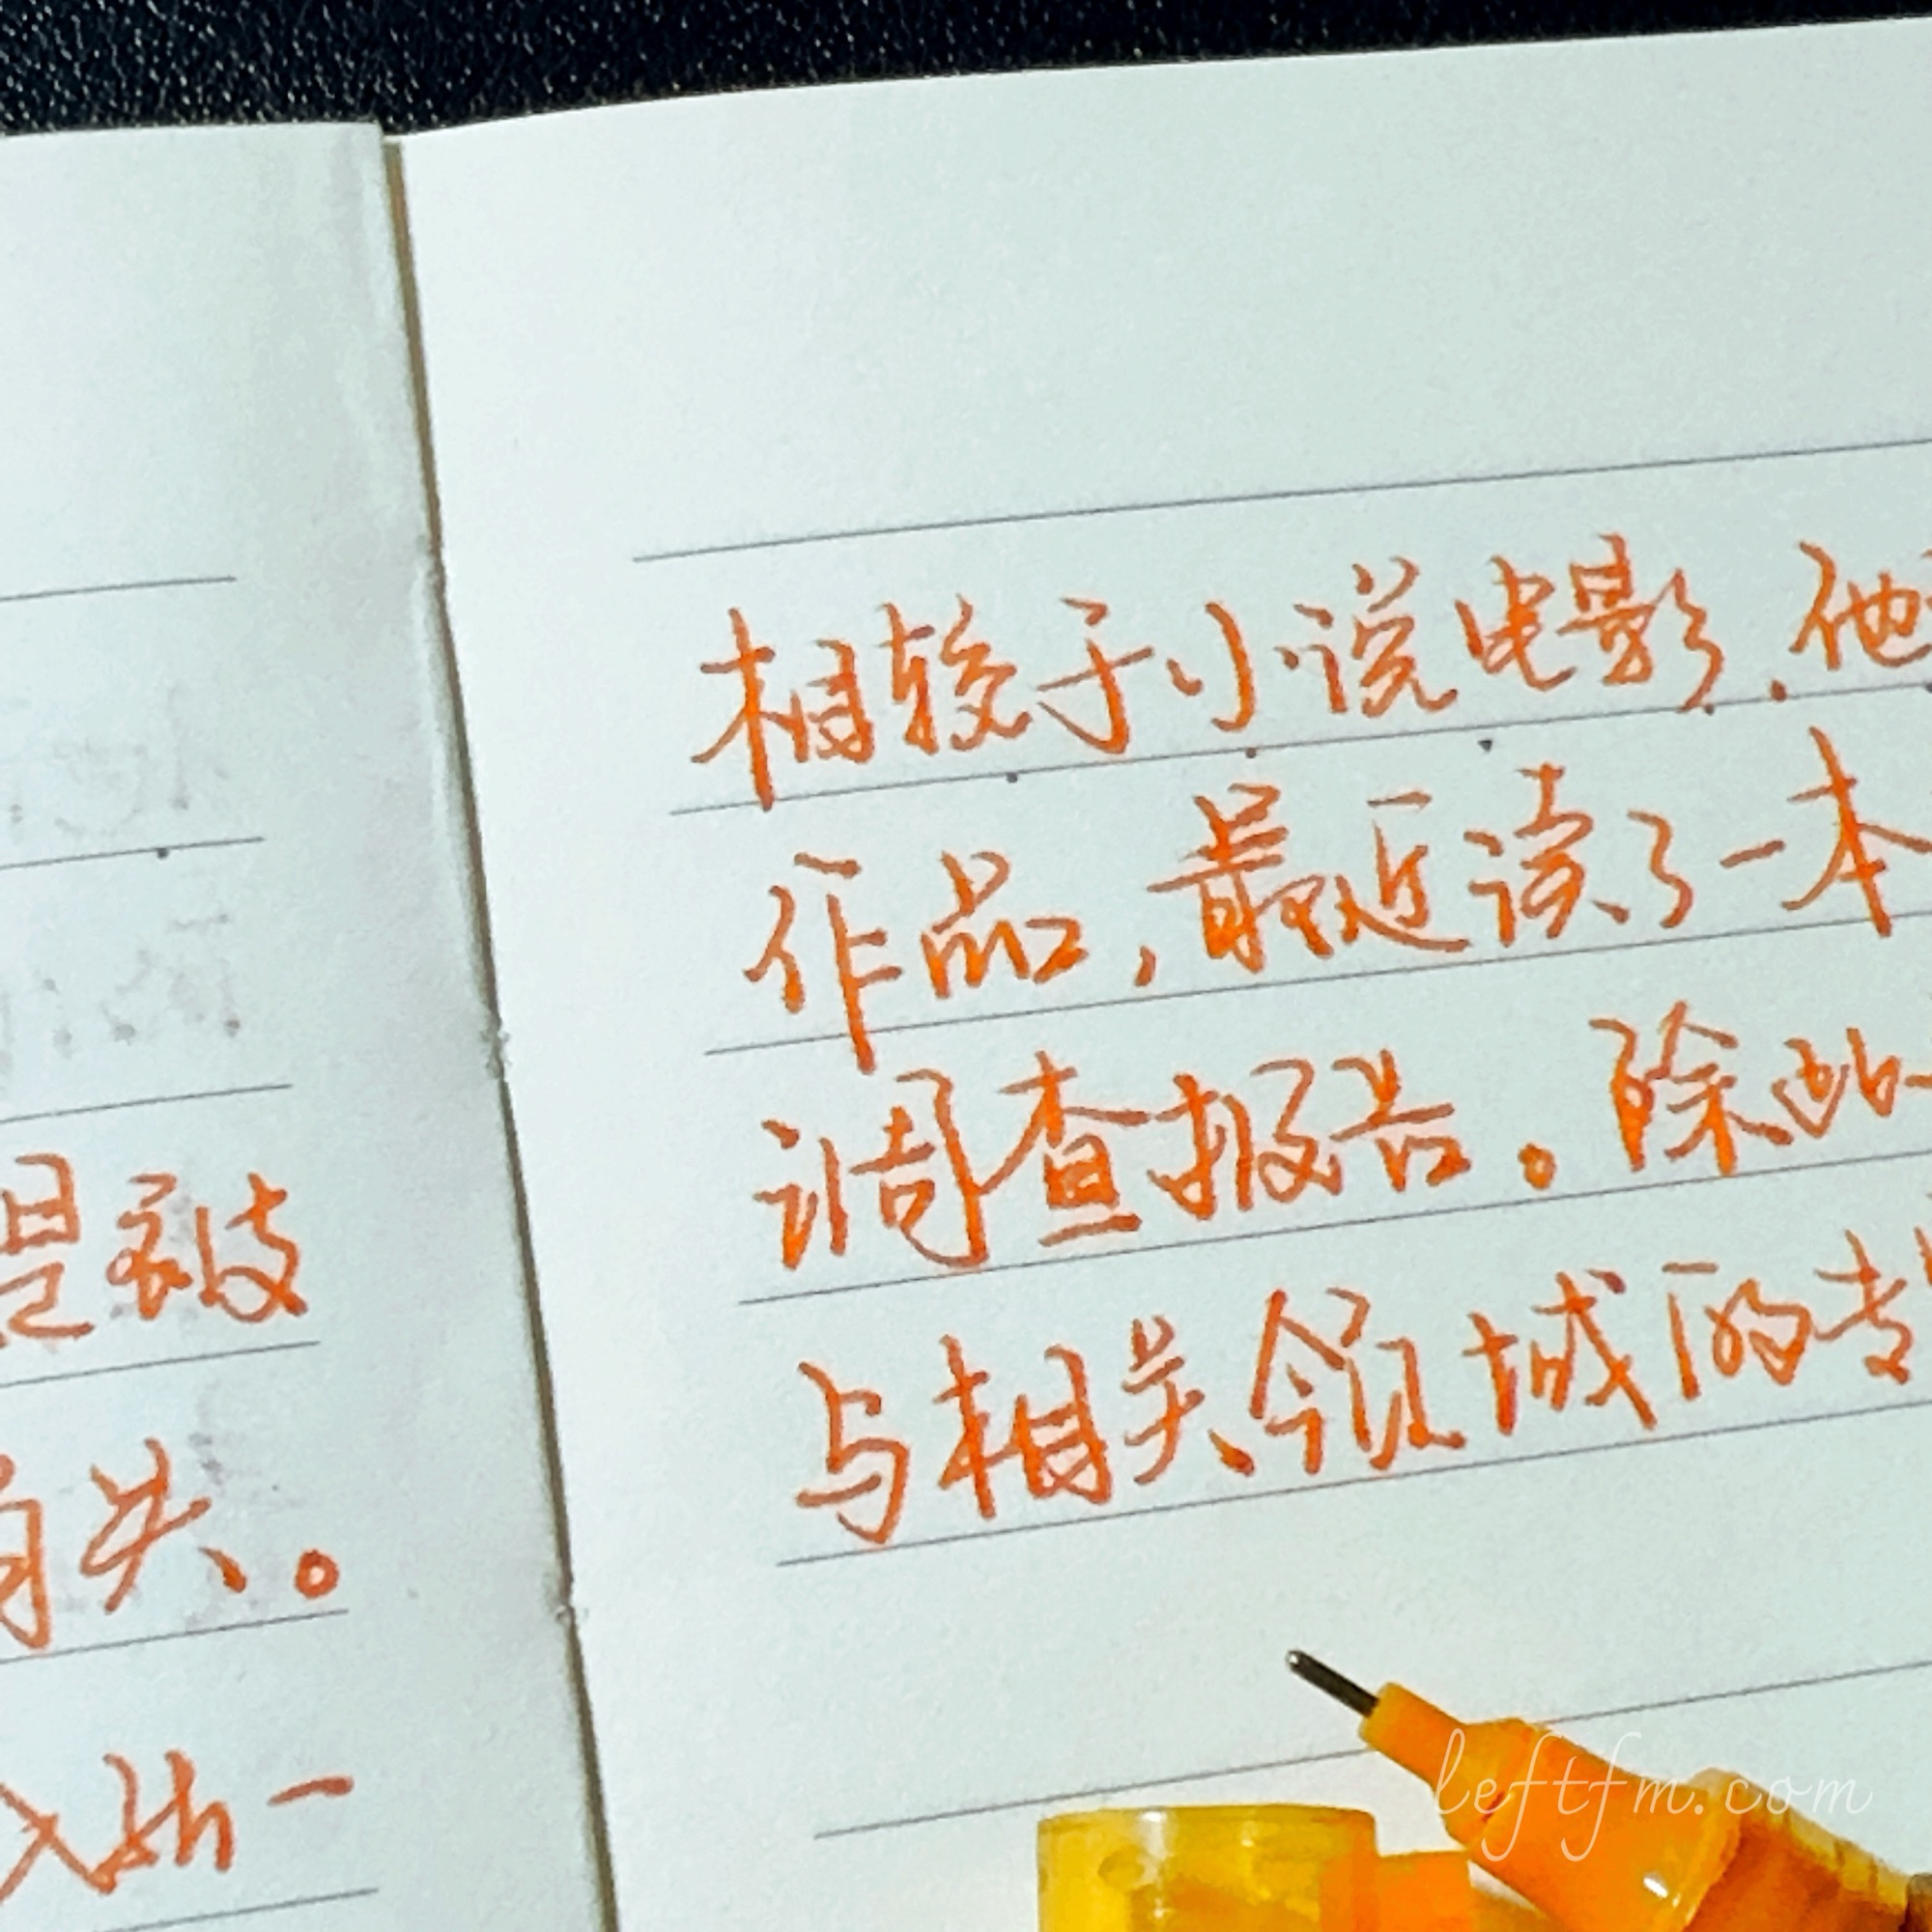 是被
有失。
一
相较于小说电影，他
作品，最近读了一本
调查报告。除此
与相关领域的专
leftfm.com